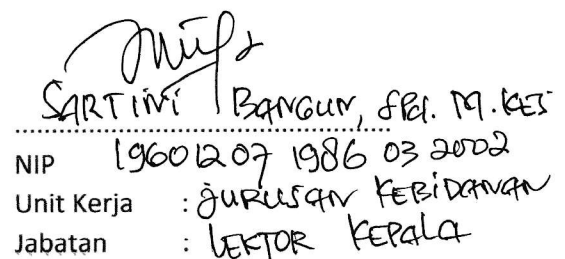 SARTINI BANGUN, SPd. M.KES
NIP 19601207 1986 03 2002
Unit Kerja : JURUSAN KEBIDANAN
Jabatan : LEKTOR KEPALA